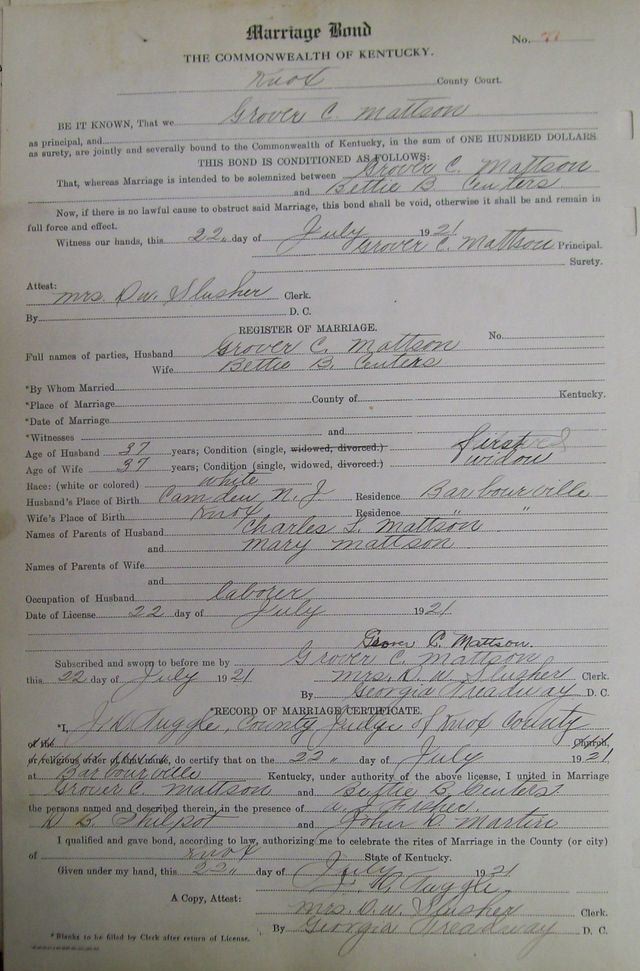 Marriage Bond
No.
THE COMMONWEALTH OF KENTUCKY.
Knox County Court.
BE IT KNOWN, That we Grover C. Mattson
as principal, and
as surety, are jointly and severally bound to the Commonwealth of Kentucky, in the sum of ONE HUNDRED DOLLARS.
THIS BOND IS CONDITIONED AS FOLLOWS:
That, whereas Marriage is intended to be solemnized between Grover C. Mattson
and Bettie B. Centers
Now, if there is no lawful cause to obstruct said Marriage, this bond shall be void, otherwise it shall be and remain in
full force and effect.
Witness our hands, this 22, day of July 1921
Grover C. Mattson Principal.
Surety.
Attest:
Mrs. D. W. Slusher Clerk.
By D. C.
REGISTER OF MARRIAGE.
Full names of parties, Husband Grover C. Mattson No.
Wife Bettie B. Centers
*By Whom Married
*Place of Marriage County of Kentucky.
*Date of Marriage
*Witnesses and
Age of Husband 37 years; Condition (single, widowed, divorced.) First
Age of Wife 37 years; Condition (single, widowed, divorced.) widow
Race: (white or colored) white
Husband's Place of Birth Camden N. J Residence Barbourville
Wife's Place of Birth Knox Residence " "
Names of Parents of Husband Charles L. Mattson
and Mary Mattson
Names of Parents of Wife
and
Occupation of Husband laborer
Date of License 22 day of July 1921
Grover C. Mattson.
Subscribed and sworn to before me by Grover C. Mattson
this 22 day of July 1921 Mrs. D. W. Slusher Clerk.
By Georgia Treadway D. C.
*RECORD OF MARRIAGE CERTIFICATE.
*I, J. D. Tuggle, County Judge of Knox County
of the Church,
or religious order of that name, do certify that on the 22 " day of July 1921
at Barbourville Kentucky, under authority of the above license, I united in Marriage
Grover C. Mattson and Bettie B. Centers
the persons named and described therein, in the presence of Fisher
D. B. Philpot and John D Martin
I qualified and gave bond, according to law, authorizing me to celebrate the rites of Marriage in the County (or city)
of Knox State of Kentucky.
Given under my hand, this 22 " day of July 1921
Tuggle
A Copy, Attest:
Mrs. D. W. Slusher Clerk.
By Georgia Treadway D. C.
*Blanks to be filled by Clerk after return of License.